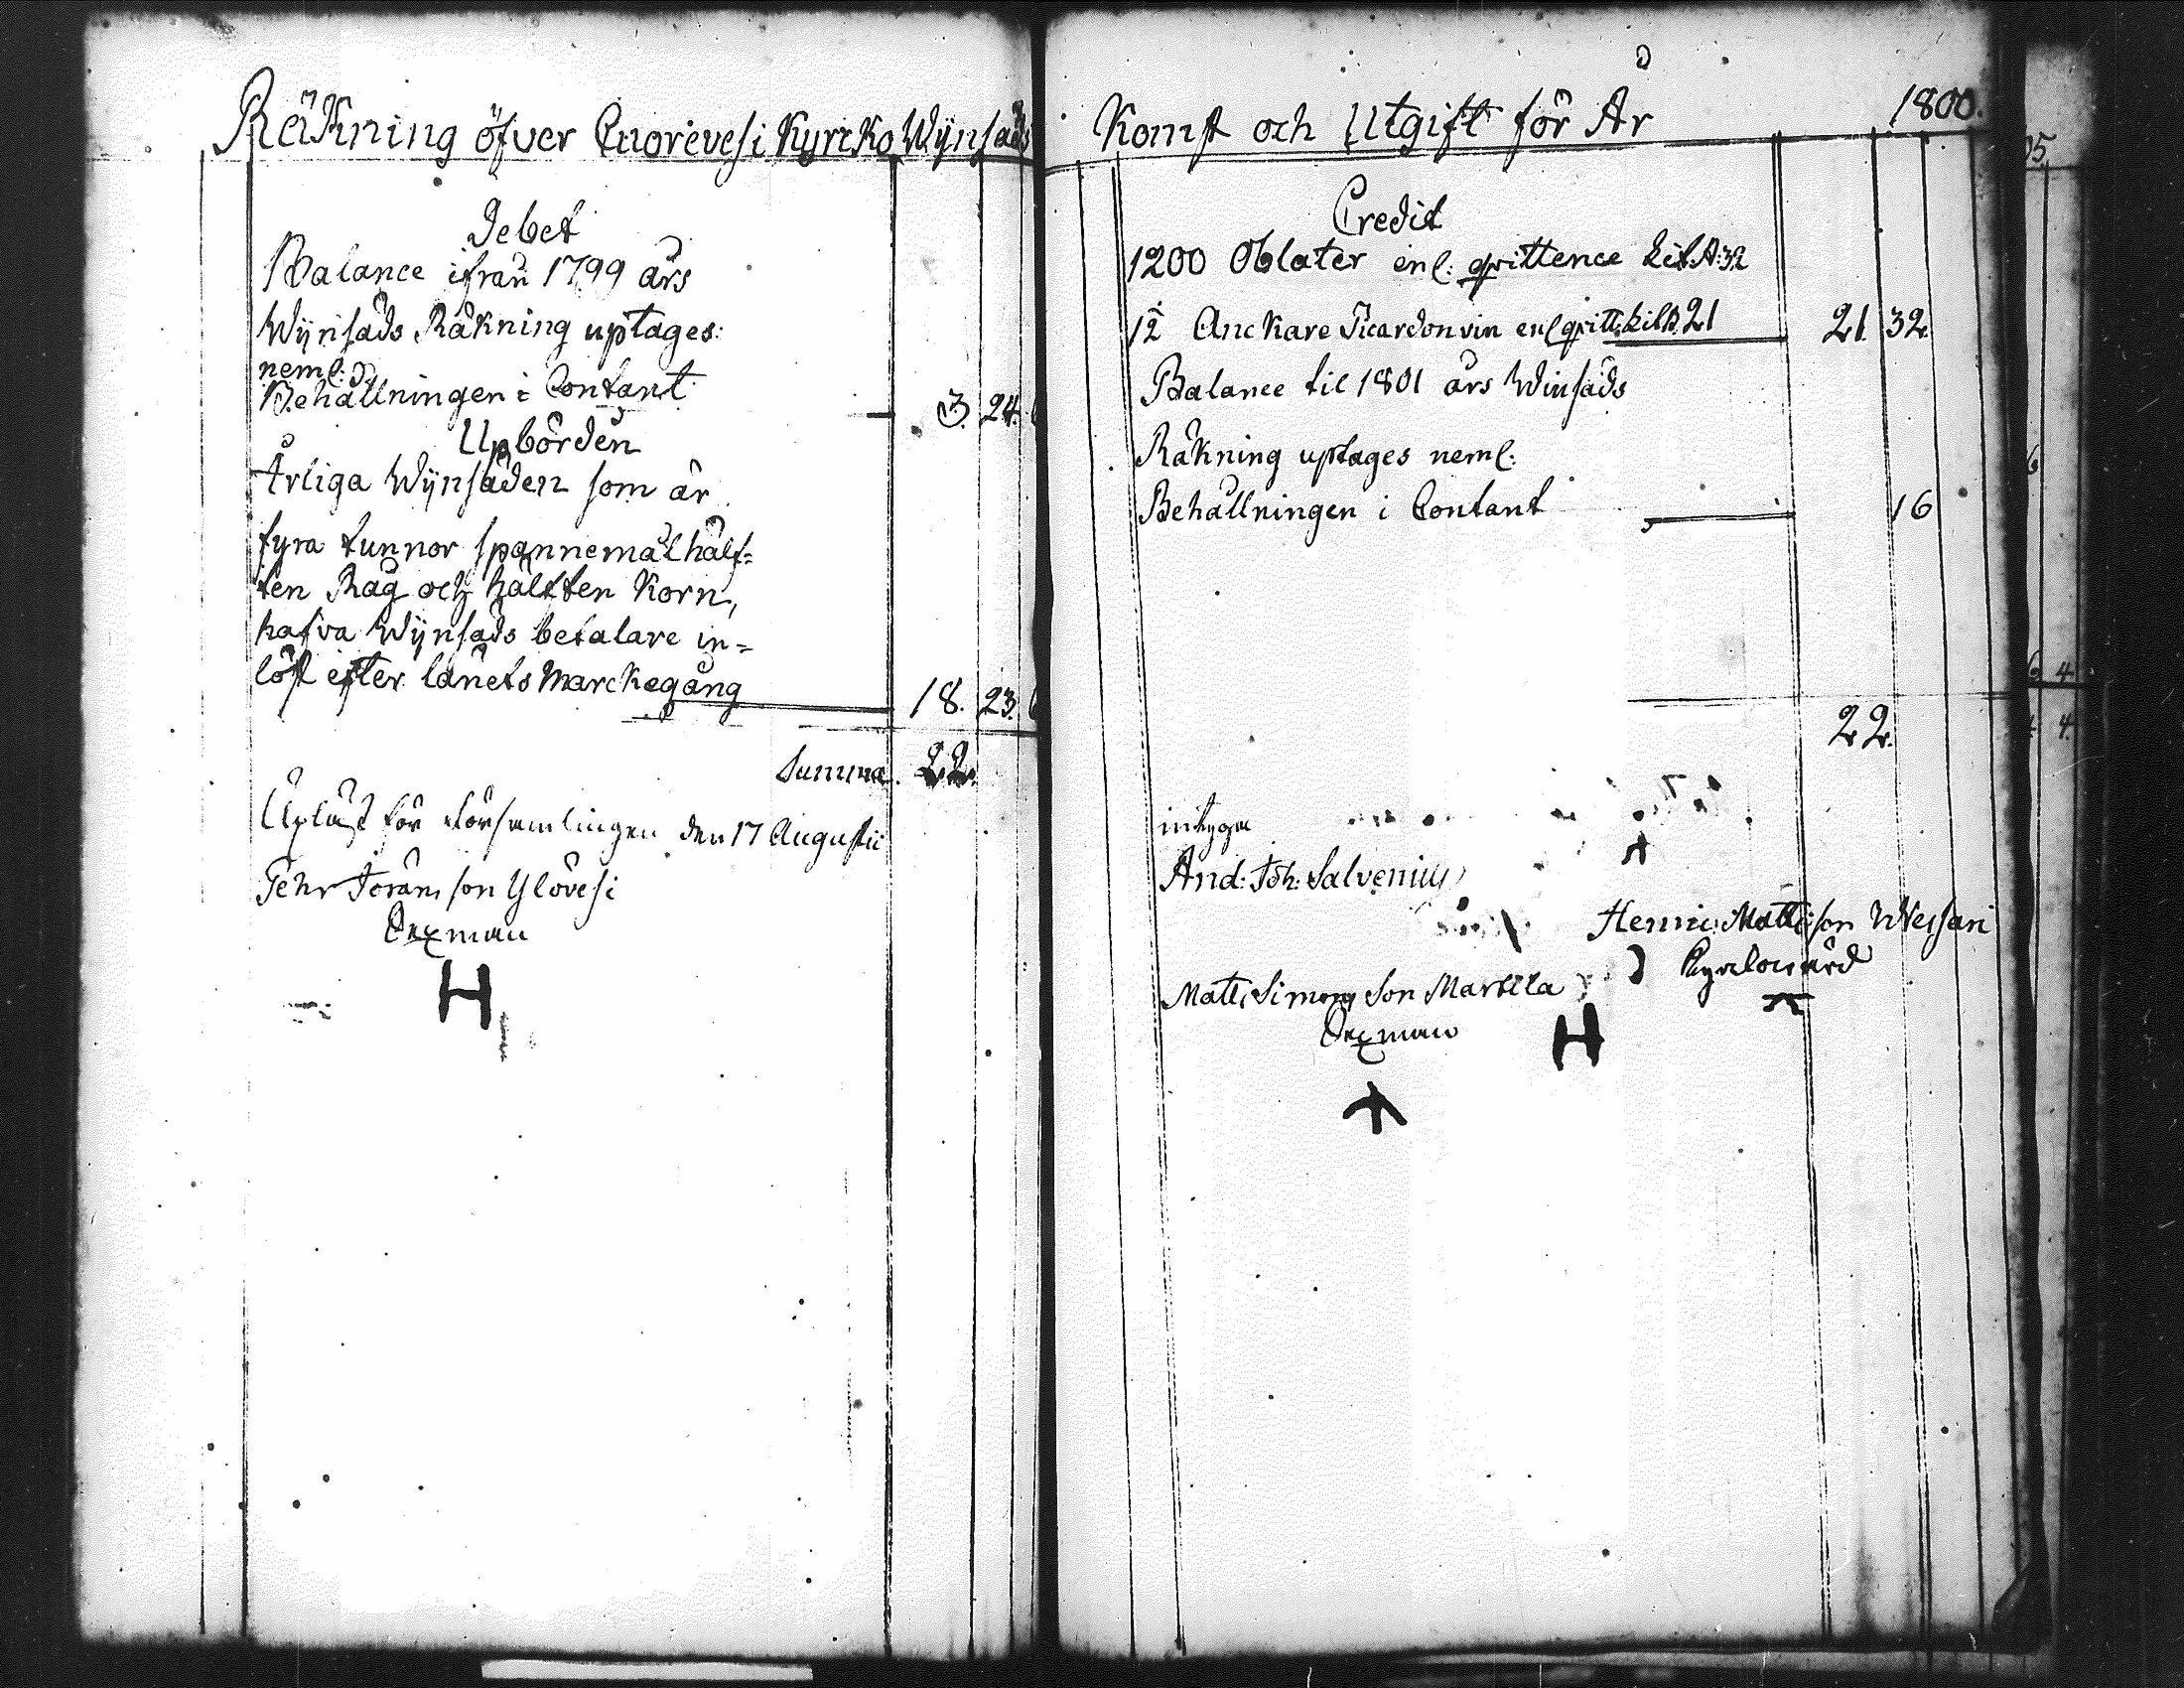 Räkning öfver Cuorevesi Kyrcko Wÿnsäds
Debet
Balance ifrån 1799 års
Wÿnsäds Räkning uptages:
neml:
Behållningen i Contant 3. 24.
Upbörden
Årliga Wÿnsäden som är
fyra tunnor spannemål hälf=
ten Råg och hälften Korn,
hafva Wÿnsäds betalare in=
löst efter länets Marckegång 18. 23.
Summa. 22.
Upläst för Församlingen den 17 Augustii
Pehr Göransson Ylövesi
Sexman
H
Komst och Utgift för År 1800.
Credit
1200 Oblater enl: qvittence Lit. A: 32
1/2 Anckare Picardon vin enl qvitt. Lit B. 21 21. 32.
Balance til 1801 års Winsäds
Räkning uptages neml:
Behållningen i Contant 16
22.
intyga
And: Joh: Salvenius
Henric Matts son Wessari
Kyrckovärd
Matts Simons Son Marttila
Sexman
H
05.
6
6 4
4.